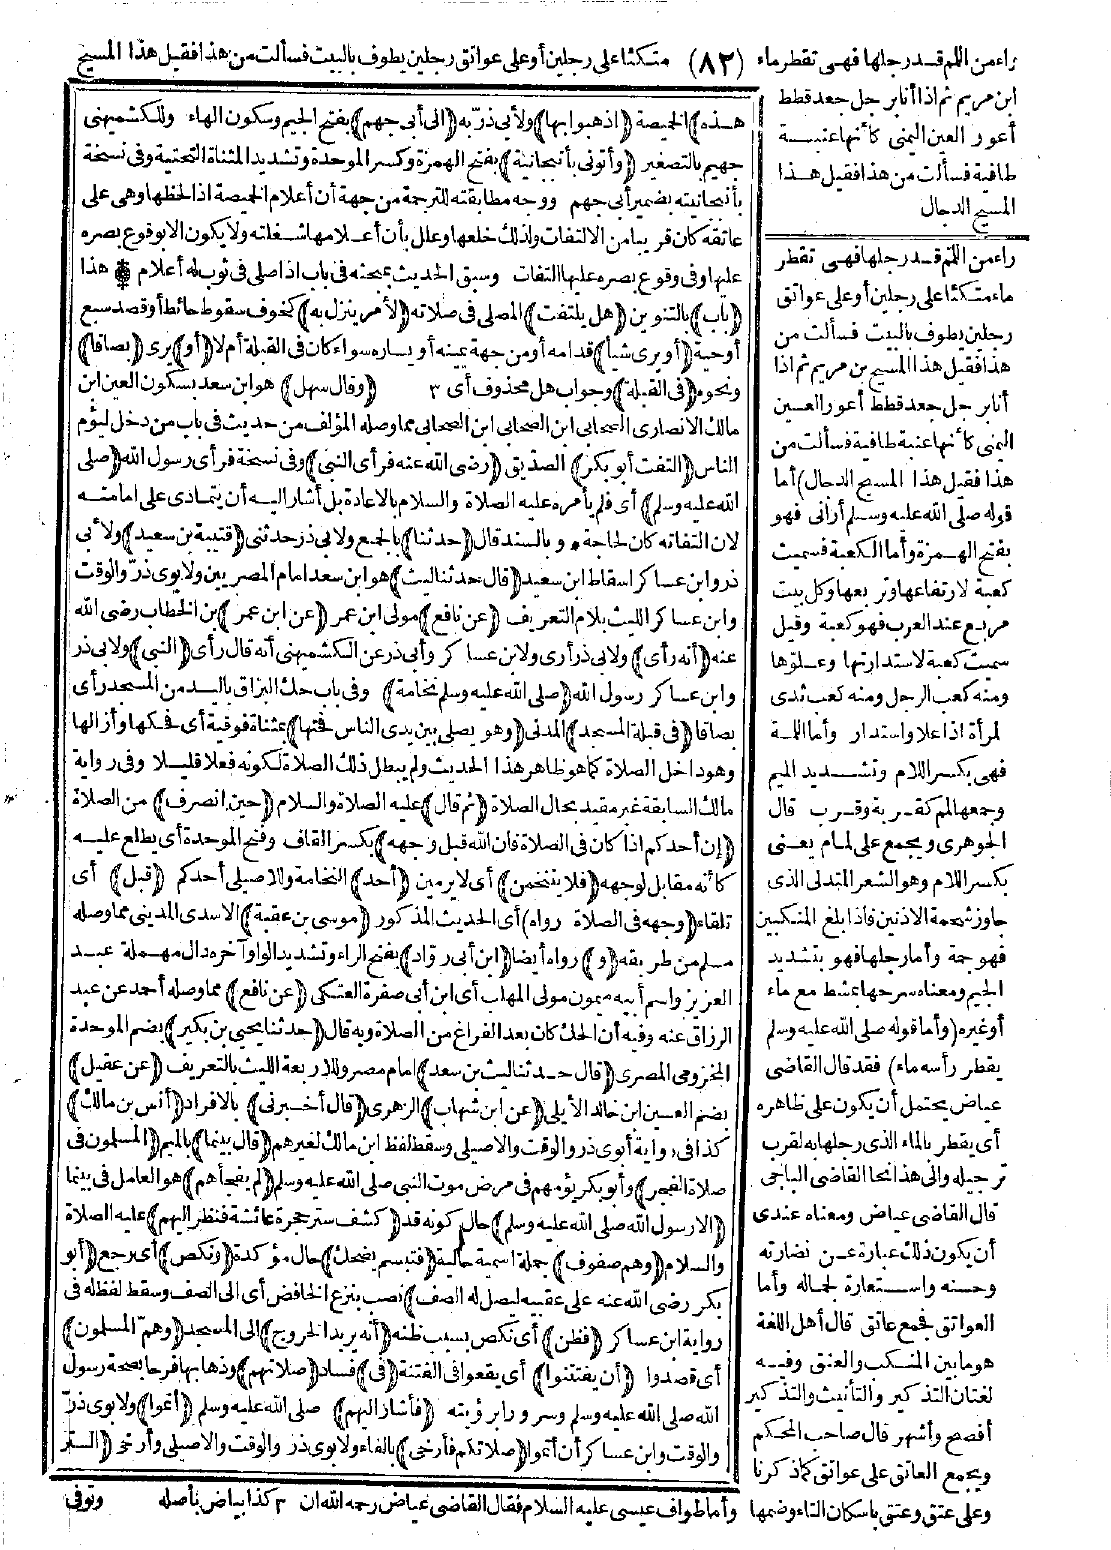 راء من اللمم قد رجلها فهى تقطر ماء (٨٢) متكئا على رجلين أو على عواتق رجلين يطوف بالبيت فسألت من هذا فقيل هذا المسيح
ابن مريم ثم اذا أنا برجل جعد قطط
أعور العين اليمنى كأنها عنبة
طافية فسألت من هذا فقيل هذا
المسيح الدجال
راء من اللمم قد رجلها فهى تقطر
ماء متكئا على رجلين أو على عواتق
رجلين يطوف بالبيت فسألت من
هذا فقيل هذا المسيح بن مريم ثم اذا
أنا برجل جعد قطط أعور العين
اليمنى كأنها عنبة طافية فسألت من
هذا فقيل هذا المسيح الدجال) أما
قوله صلى الله عليه وسلم أرانى فهو
بفتح الهمزة وأما الكعبة فسميت
كعبة لارتفاعها وتربعها وكل بيت
مربع عند العرب فهو كعبة وقيل
سميت كعبة لاستدارتها وعلوّها
ومنه كعب الرجل ومنه كعب ثدى
المرأة اذا علا واستدار وأما اللمة
فهى بكسر اللام وتشديد الميم
وجمعها لمم كقربة وقرب قال
الجوهرى ويجمع على لمام يعنى
بكسر اللام وهو الشعر المتدلى الذى
جاوز شحمة الاذنين فاذا بلغ المنكبين
فهو جمة وأما رجلها فهو بتشديد
الجيم ومعناه سرحها بمشط مع ماء
أو غيره (وأما قوله صلى الله عليه وسلم
يقطر رأسه ماء) فقد قال القاضى
عياض يحتمل أن يكون على ظاهره
أى يقطر بالماء الذى رجلها به لقرب
ترجيله والى هذا نحا القاضى الباجى
قال القاضى عياض ومعناه عندى
أن يكون ذلك عبارة عن نضارته
وحسنه واستعارة لجماله وأما
العواتق فجمع عاتق قال أهل اللغة
هو ما بين المنكب والعنق وفيه
لغتان التذكير والتأنيث والتذكير
أفصح وأشهر قال صاحب المحكم
ويجمع العاتق على عواتق كما ذكرنا
وعلى عتق وعتق باسكان التاء وضمها وأما طواف عيسى عليه السلام فقال القاضى عياض رحمه الله ان
هذه) الخميصة (اذهبوا بها) ولأبى ذرّ به (الى أبى جهم) بفتح الجيم وسكون الهاء وللكشميهنى
جهيم بالتصغير (وأتونى بأنبجانية) بفتح الهمزة وكسر الموحدة وتشديد المثناة التحتية وفى نسخة
بأنبجانيته بضمير أبى جهم ووجه مطابقته للترجمة من جهة أن أعلام الخميصة اذا لحظها وهى على
عاتقه كان قريبا من الالتفات ولذلك خلعها وعلل بأن أعلامها شغلته ولا يكون الا بوقوع بصره
عليها وفى وقوع بصره عليها التفات وسبق الحديث بمبحثه فى باب اذا صلى فى ثوب له أعلام * هذا
(باب) بالتنوين (هل يلتفت) المصلى فى صلاته (لأمر ينزل به) كخوف سقوط حائط أو قصد سبع
أو حية (أو يرى شيأ) قدامه أو من جهة يمينه أو يساره سواء كان فى القبلة أم لا (أو) يرى (بصاقا)
ونحوه (فى القبلة) وجواب هل محذوف أى ٣ (وقال سهل) هو ابن سعد بسكون العين ابن
مالك الانصارى الصحابى ابن الصحابى مما وصله المؤلف من حديث فى باب من دخل ليؤم
الناس (التفت أبو بكر) الصديق (رضى الله عنه فرأى النبى) وفى نسخة فرأى رسول الله (صلى
الله عليه وسلم) أى فلم يأمره عليه الصلاة والسلام بالاعادة بل أشار اليه أن يتمادى على امامته
لان التفاته كان لحاجة * وبالسند قال (حدثنا) بالجمع ولابى ذر حدثنى (قتيبة بن سعيد) ولأبى
ذر وابن عساكر اسقاط ابن سعيد (قال حدثنا ليث) هو ابن سعد امام المصريين ولابوى ذرّ والوقت
وابن عساكر الليث بلام التعريف (عن نافع) مولى ابن عمر (عن ابن عمر) بن الخطاب رضى الله
عنه (أنه رأى) ولابى ذر أرى ولابن عساكر وأبى ذر عن الكشميهنى أنه قال رأى (النبى) ولابى ذر
وابن عساكر رسول الله (صلى الله عليه وسلم نخامة) وفى باب حك البزاق باليد من المسجد رأى
بصاقا (فى قبلة المسجد) المدنى (وهو يصلى بين يدى الناس فحتها) بمثناة فوقية أى فحكها وأزالها
وهو داخل الصلاة كما هو ظاهر هذا الحديث ولم يبطل ذلك الصلاة لكونه فعلا قليلا وفى رواية
مالك السابقة غير مقيد بحال الصلاة (ثم قال) عليه الصلاة والسلام (حين انصرف) من الصلاة
(إن أحدكم اذا كان فى الصلاة فان الله قبل وجهه) بكسر القاف وفتح الموحدة أى يطلع عليه
كأنه مقابل لوجهه (فلا يتنخمن) أى لا يرمين (أحد) النخامة وللاصيلى أحدكم (قبل) أى
تلقاء (وجهه فى الصلاة رواه) أى الحديث المذكور (موسى بن عقبة) الاسدى المدينى مما وصله
مسلم من طريقه (و) رواه أيضا (ابن أبى روّاد) بفتح الراء وتشديد الواو آخره دال مهملة عبد
العزيز واسم أبيه ميمون مولى المهلب أى ابن أبى صفرة العتكى (عن نافع) مما وصله أحمد عن عبد
الرزاق عنه وفيه أن الحك كان بعد الفراغ من الصلاة وبه قال (حدثنا يحيى بن بكير) بضم الموحدة
المخزومى المصرى (قال حدثنا ليث بن سعد) امام مصر وللاربعة الليث بالتعريف (عن عقيل)
بضم العين ابن خالد الأيلى (عن ابن شهاب) الزهرى (قال أخبرنى) بالافراد (أنس بن مالك)
كذا فى رواية أبوى ذر والوقت والاصيلى وسقط لفظ ابن مالك لغيرهم (قال بينما) بالميم (المسلمون فى
صلاة الفجر) وأبو بكر يؤمهم فى مرض موت النبى صلى الله عليه وسلم (لم يفجأهم) هو العامل فى بينما
(الا رسول الله صلى الله عليه وسلم) حال كونه قد (كشف ستر حجرة عائشة فنظر اليهم) عليه الصلاة
والسلام (وهم صفوف) جملة اسمية حالية (فتبسم يضحك) حال مؤكدة (ونكص) أى رجع (أبو
بكر رضى الله عنه على عقبيه ليصل له الصف) نصب بنزع الخافض أى الى الصف وسقط لفظ له فى
رواية ابن عساكر (فظن) أى نكص بسبب ظنه (أنه يريد الخروج) الى المسجد (وهمّ المسلمون)
أى قصدوا (أن يفتتنوا) أى يقعوا فى الفتنة (فى) فساد (صلاتهم) وذهابها فرحا بصحة رسول
الله صلى الله عليه وسلم وسرورا برؤيته (فأشار اليهم) صلى الله عليه وسلم (أتموا) ولابوى ذرّ
والوقت وابن عساكر أن أتموا (صلاتكم فأرخى) بالفاء ولابوى ذر والوقت والاصيلى وأرخى (الستر
٣ كذا بياض بأصله
وتوفى